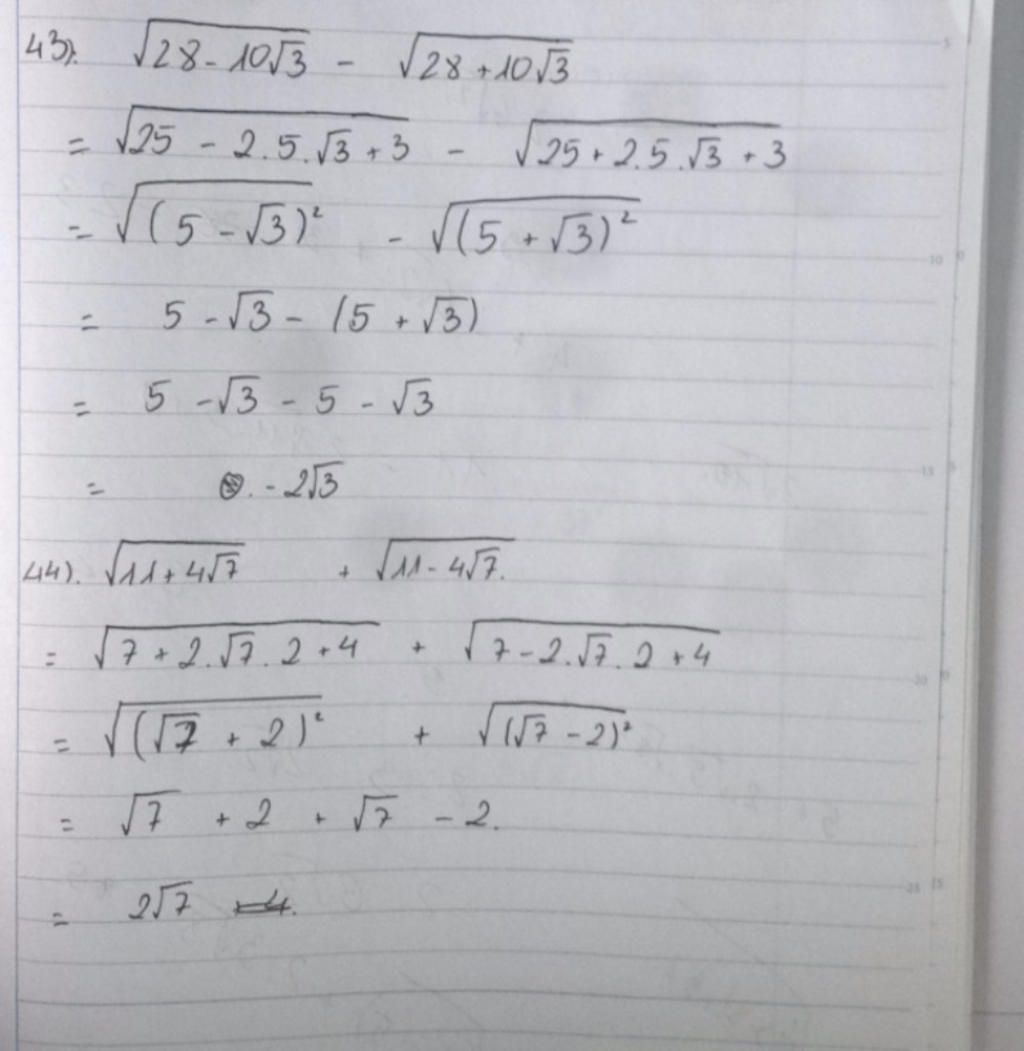 43). √(28 - 10√3) - √(28 + 10√3)
= √(25 - 2.5.√3 + 3) - √(25 + 2.5.√3 + 3)
= √((5 - √3)²) - √((5 + √3)²)
= 5 - √3 - (5 + √3)
= 5 - √3 - 5 - √3
= - 2√3
44). √(11 + 4√7) + √(11 - 4√7).
= √(7 + 2.√7.2 + 4) + √(7 - 2.√7.2 + 4)
= √((√7 + 2)²) + √((√7 - 2)²)
= √7 + 2 + √7 - 2.
= 2√7